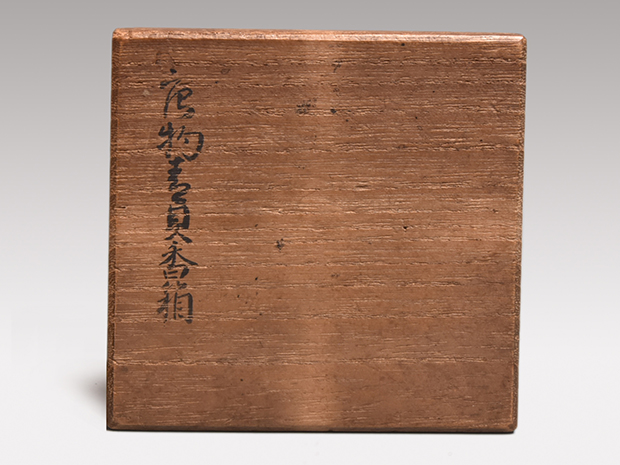 唐物青貝香箱